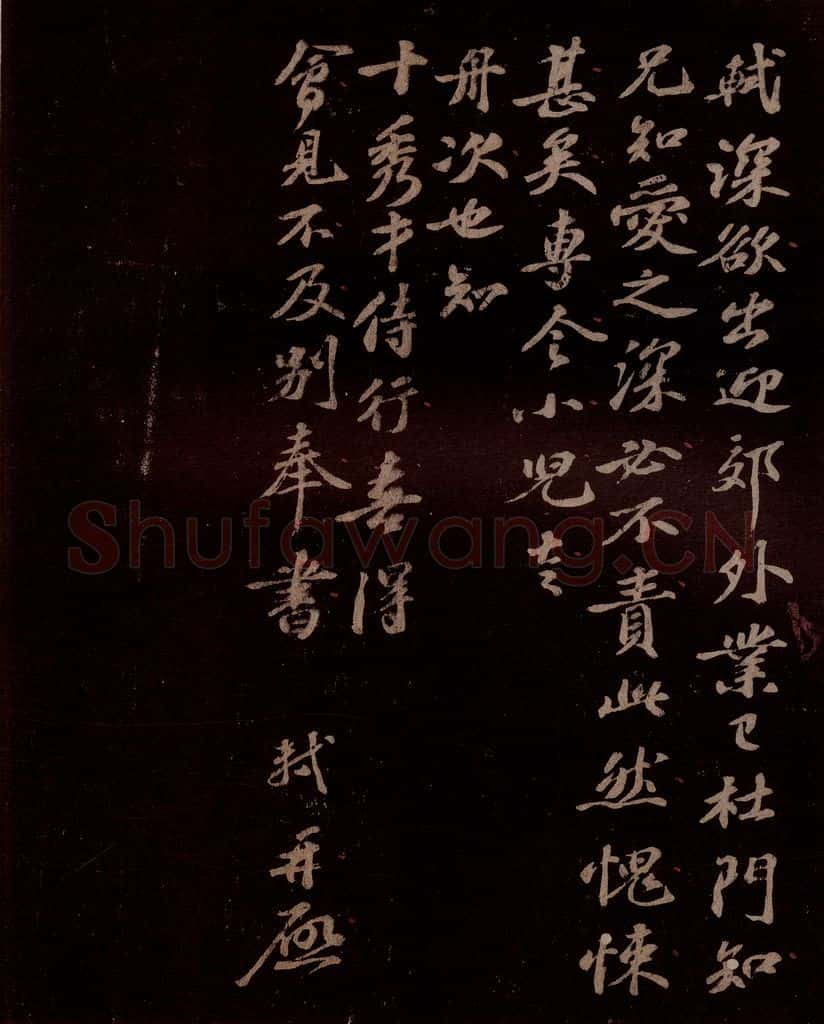 軾深欲出迎郊外業已杜門知
兄知愛之深必不責此然愧悚
甚矣專令小兒去
舟次也知
十秀才侍行喜得
會見不及別奉書 軾再啟
Shufawang.CN